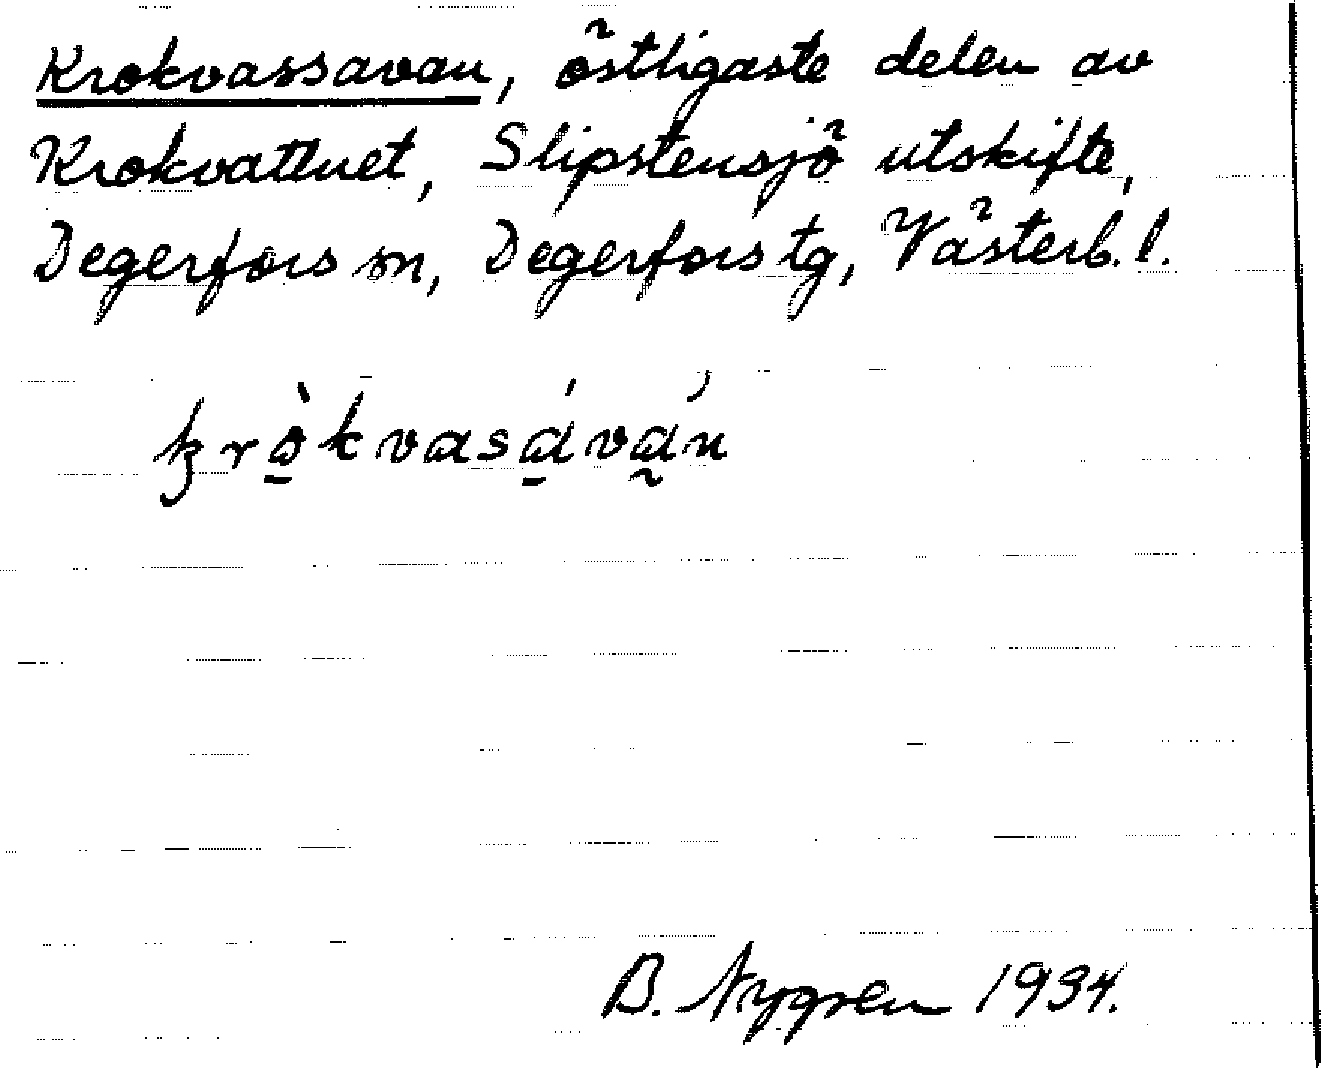 Krokvassavan, östligaste delen av
Krokvattnet, Slipstensjö utskifte,
Degerfors sn, Degerfors tg, Västerb. l.
kròkvasáván
B. Nygren 1934.